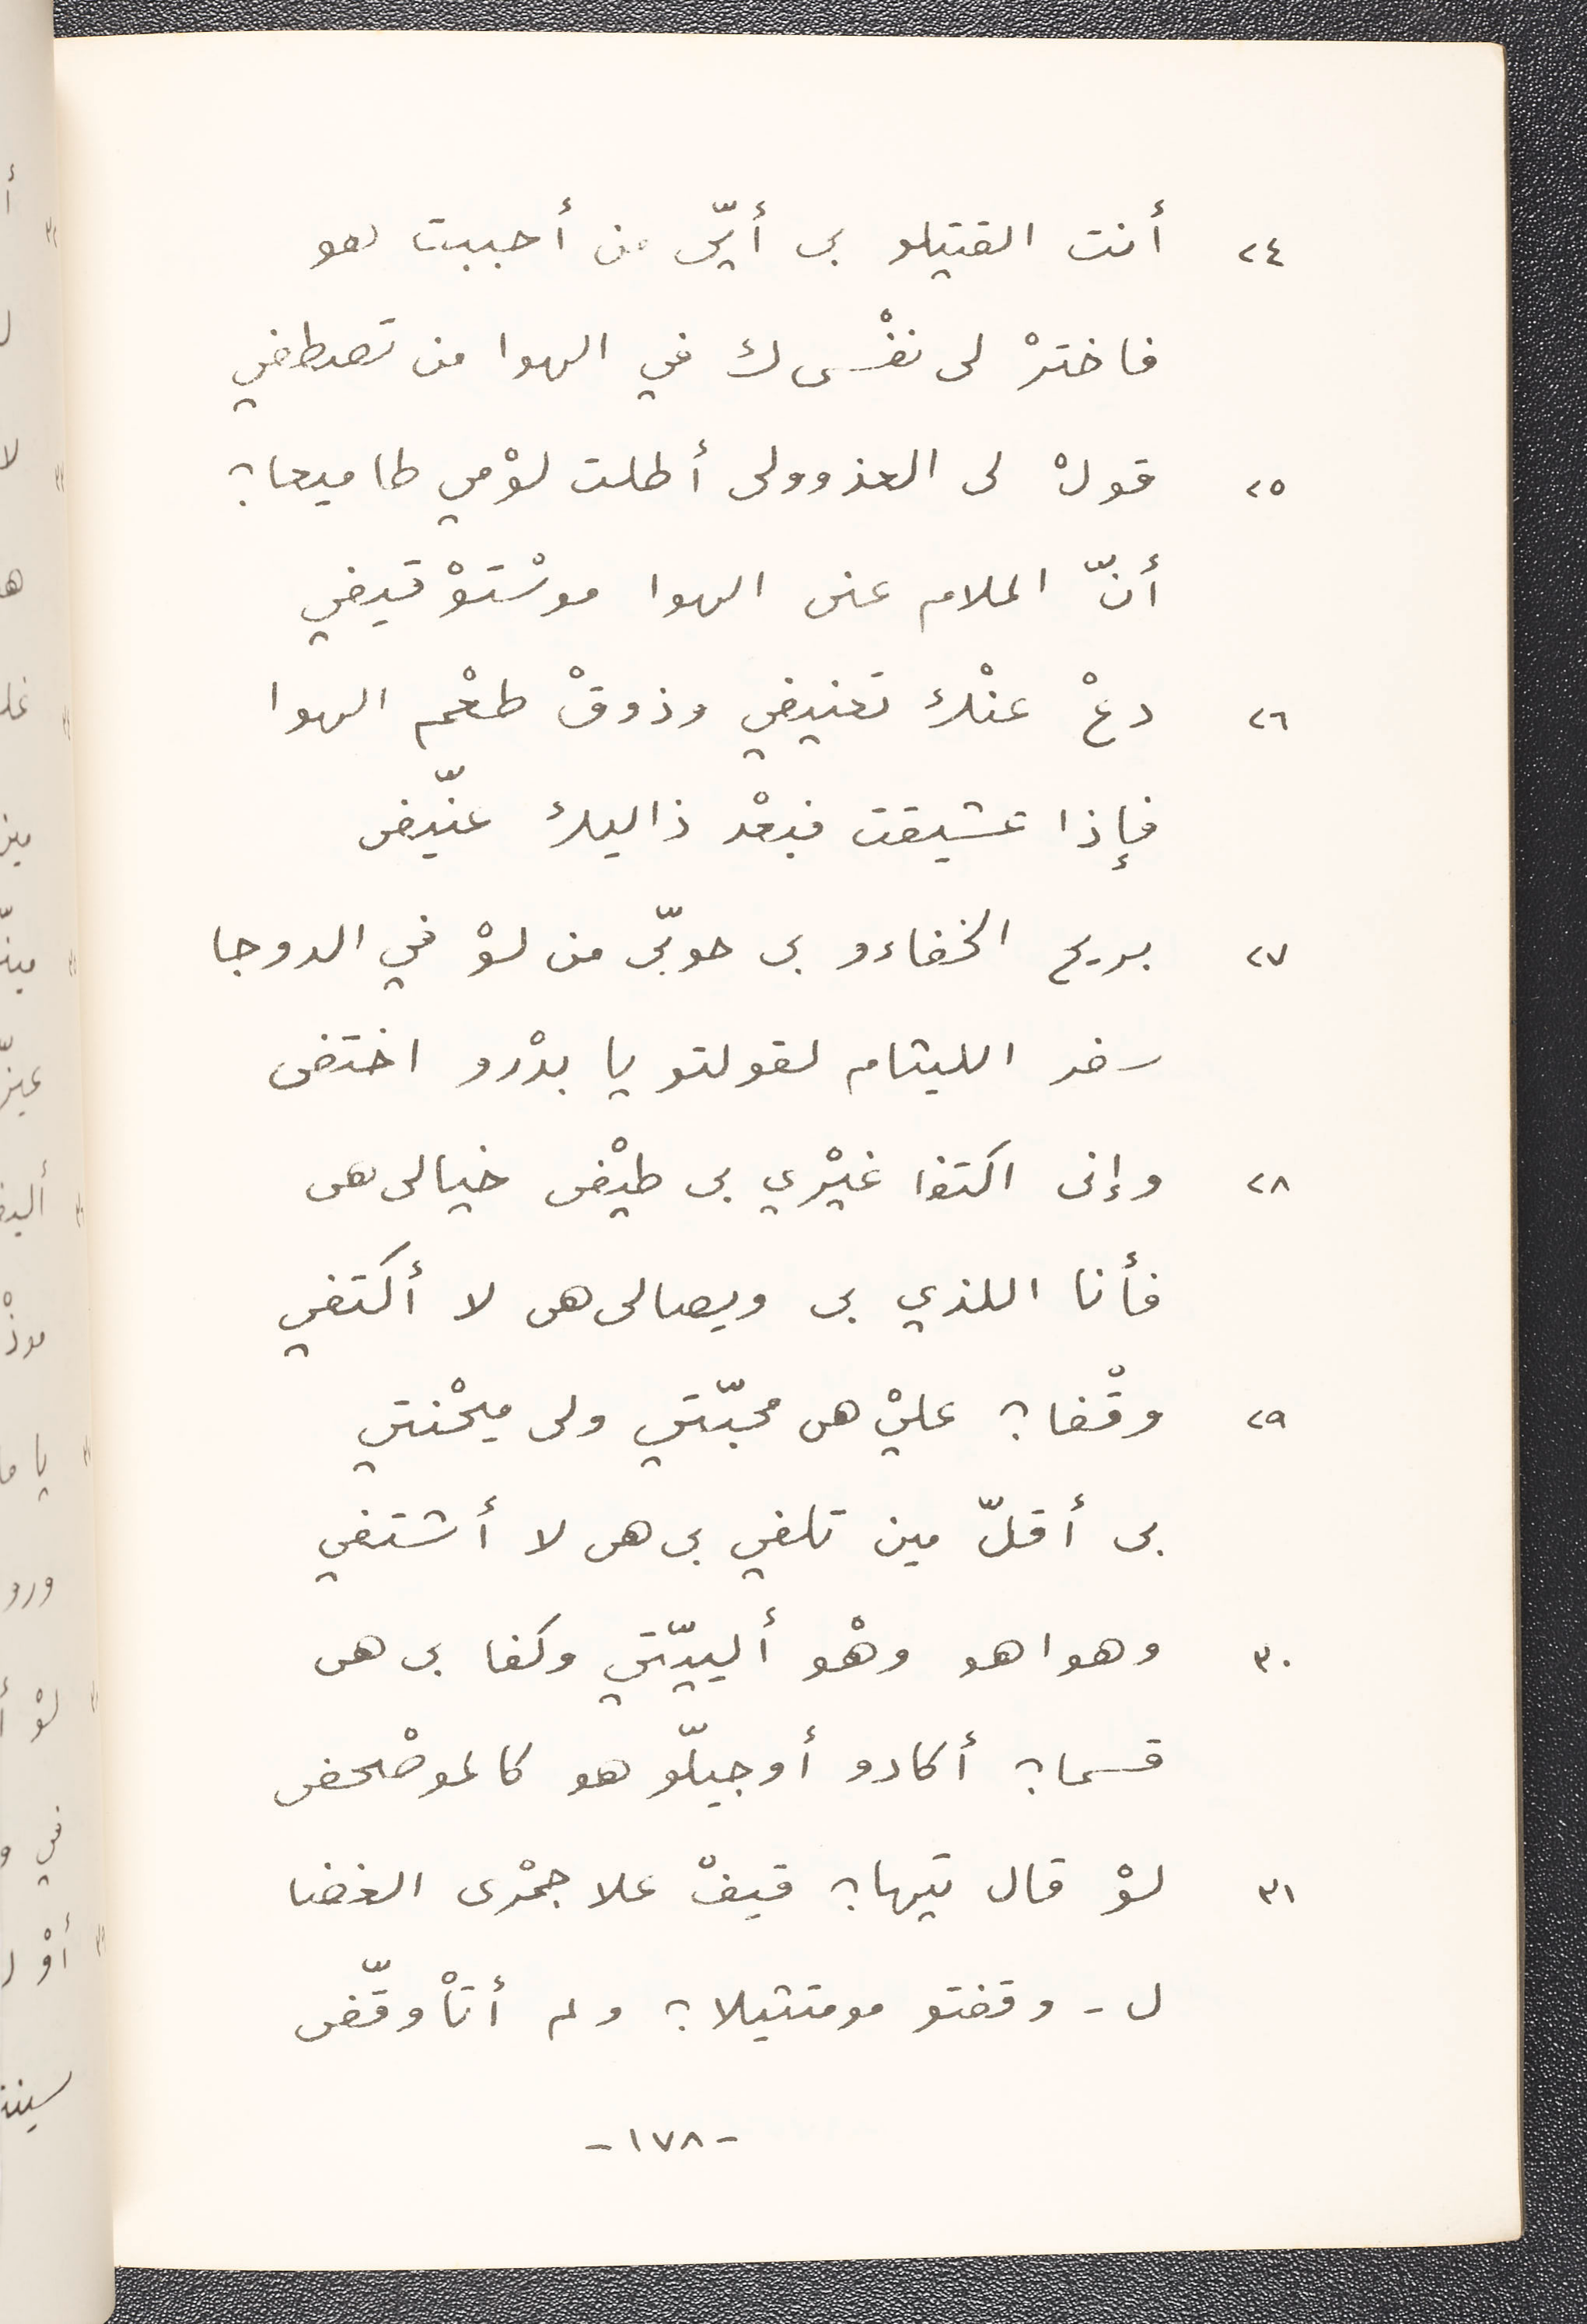 ٢٤ أنت القتيلو بى أيّى من أحببت هو
فاخترْ لى نفْسى ك في الهوا من تصطفي
٢٥ قولْ لى العذوولى أطلت لوْمي طاميعا؟
أنّ الملام عنى الهوا موسْتوْقيفي
٢٦ دعْ عنْك تعنيفي وذوقْ طعْم الهوا
فإذا عشيقت فبعْد ذاليك عنّيفى
٢٧ بريح الخفاءو بى حوبّى من لوْ في الدوجا
سفر الليثام لقولتو يا بدْرو اختفى
٢٨ وإنى اكتفا غيْري بى طيْفى خيالى هى
فأنا اللذي بى ويصالى هى لا أكتفي
٢٩ وقْفا؟ عليْ هى محبّتي ولى ميحْنتي
بى أقلّ مين تلفي بى هى لا أشتفي
٣٠ وهواهو وهْو أليّتي وكفا بى هى
قسما؟ أكادو أوجيلّو هو كالموصْحفى
٣١ لوْ قال تيها؟ قيفْ علا جمْرى الغضا
ل - وقفتو مومتثيلا؟ ولم أتأوقّفى
-١٧٨-